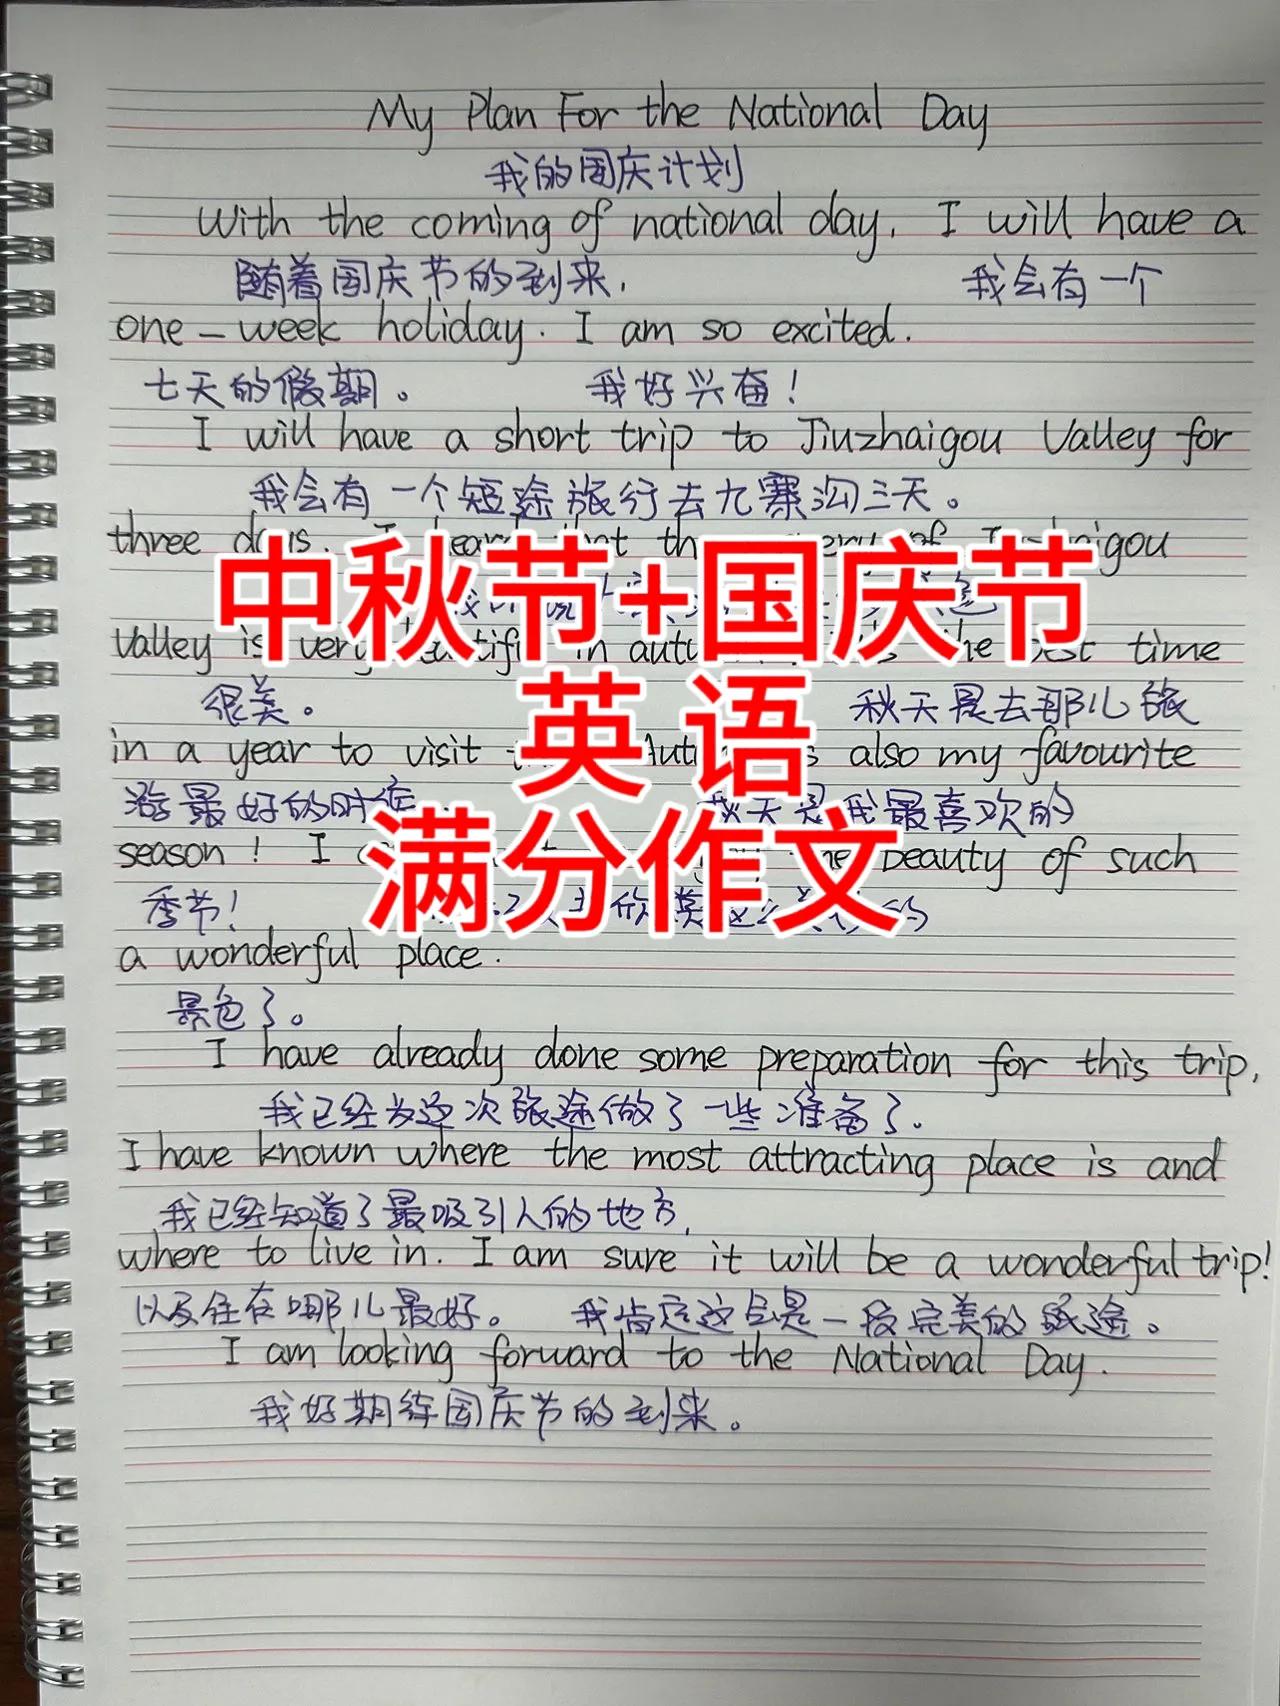 My Plan For the National Day
我的国庆计划
With the coming of national day, I will have a
随着国庆节的到来, 我会有一个
one-week holiday. I am so excited.
七天的假期。 我好兴奋!
I will have a short trip to Jiuzhaigou Valley for
我会有一个短途旅行去九寨沟三天。
three days. I that of
中秋节+国庆节
Valley is very in time
很美。 秋天是去那儿旅
英语
in a year to visit also my favourite
游最好的时 秋天是我最喜欢的
满分作文
season! I beauty of such
季节! 欣 的
a wonderful place.
景色了。
I have already done some preparation for this trip,
我已经为这次旅途做了一些准备了.
I have known where the most attracting place is and
我已经知道了最吸引人的地方,
where to live in. I am sure it will be a wonderful trip!
以及住在哪儿最好。 我肯定这会是一段完美的旅途。
I am looking forward to the National Day.
我好期待国庆节的到来。